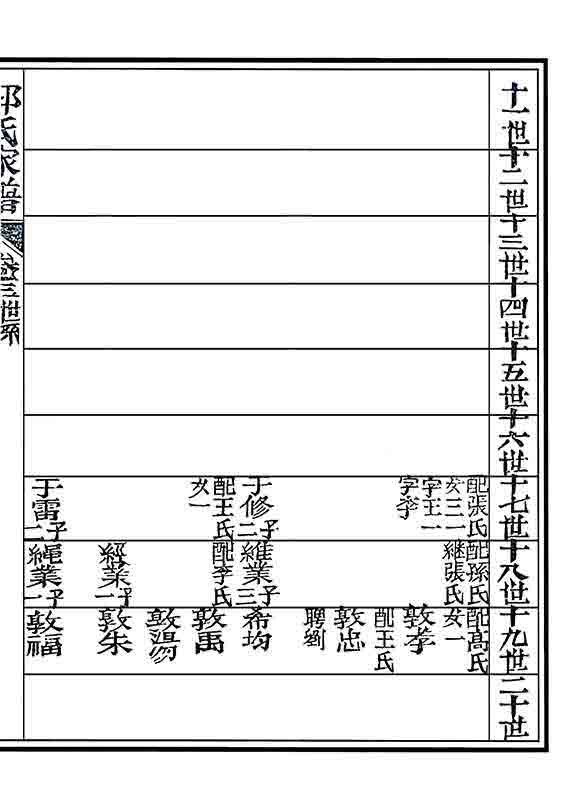 十一世
十二世
十三世
十四世
十五世
十六世
十七世
十八世
十九世
二十世
配張氏
女三一
字王一
字李
于修子二
配王氏
女一
于雷子二
配孫氏
繼張氏
維業子三
配李氏
經業子一
繩業子一
配高氏
女一
敦孝
配王氏
敦忠
聘劉
希均
敦禹
敦湯
敦朱
敦福
氏家譜
卷三世系